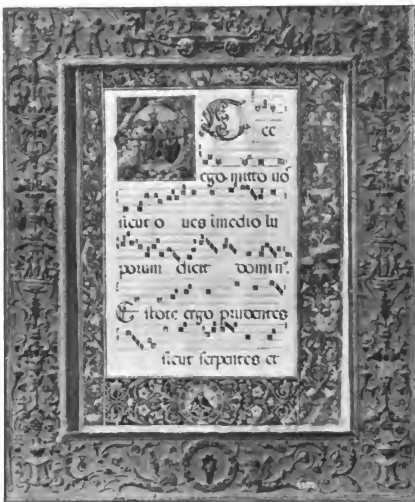 E C ce
ego mitto uoˢ
sicut o ues ī medio lu
porum dicit domin⁹.
E stote ergo prudentes
sicut serpentes et